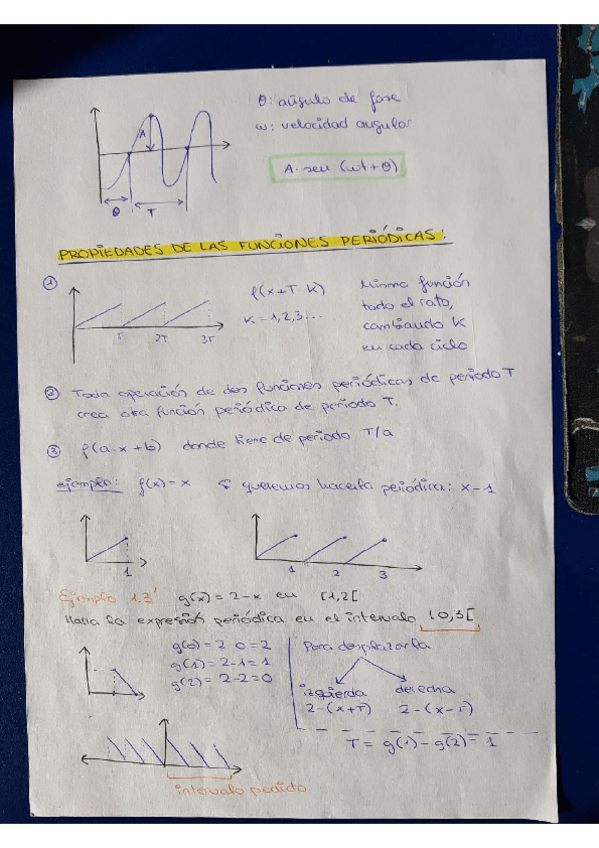 θ: ángulo de fase
A
w: velocidad angular
A·sen (wt+θ)
θ T
PROPIEDADES DE LAS FUNCIONES PERIÓDICAS:
①
f(x+T·K)
K=1,2,3...
Misma función
todo el rato,
cambiando K
en cada ciclo
T 2T 3T
② Toda operación de dos funciones periódicas de periodo T
crea otra función periódica de periodo T.
③ f(a·x+b) donde tiene de periodo T/a
ejemplo: f(x)=x queremos hacerla periódica: x-1
1
1 2 3
Ejemplo 1.3' g(x)=2-x en [1,2[
Halla la expresión periódica en el intervalo [0,3[
g(0)=2-0=2
g(1)=2-1=1
g(2)=2-2=0
Para desplazarla
izquierda derecha
2-(x+T) 2-(x-T)
T= g(1)-g(2)=1
intervalo pedido